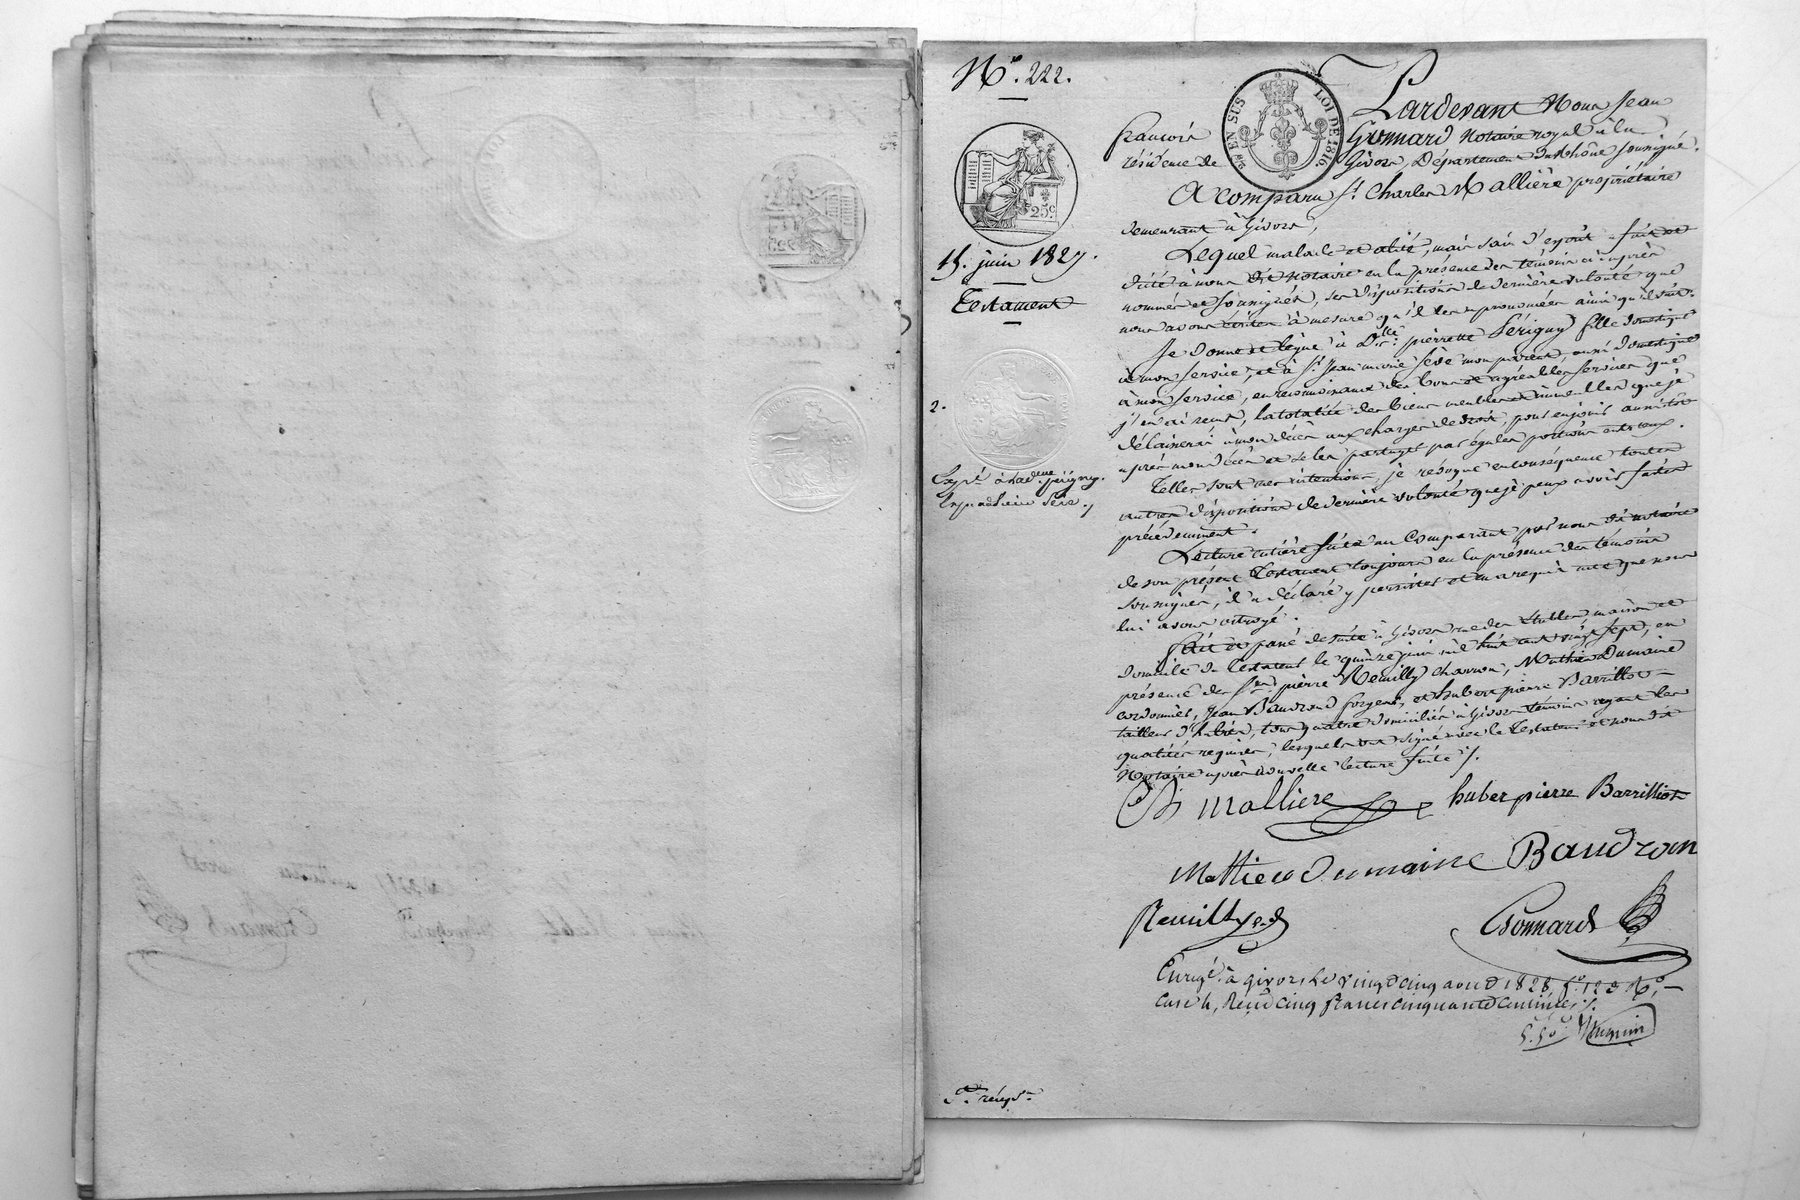 N.º 222.
25.c
15. juin 1827.
Testament
2.
EN SUS LOI DE 1816
Pardevant Nous Jean
François Gonnard notaire royal à la
résidence de Givors, Département du Rhône soussigné.
A comparu S.r Charles Mallière propriétaire
demeurant à Givors,
Lequel malade et alité, mais sain d'esprit a fait et
dicté à nous dit notaire en la présence des témoins ci après
nommés et soussignés, ses dispositions de dernière volonté que
nous avons écrites à mesure qu'il les a prononcées ainsi qu'il suit.
Je donne et lègue à D.lle pierrette Périguy fille domestique
à mon service, et à S.r Jean marie Sève mon parent, aussi domestique
à mon service, en reconnoissance des bons et agréables services que
j'en ai reçus, la totalité des biens meubles et immeubles que je
délaisserai à mon décès aux charges de droit, pour en jouir aussitôt
après mon décès et se les partager par égales portions entr'eux.
Telles sont mes intentions, je révoque en conséquence toutes
autres dispositions de dernière volonté que je peux avoir faites
précédemment.
Lecture entière faite au Comparant par nous dit notaire
de son présent Testament toujours en la présence des témoins
soussignés, il a déclaré y persister et en a requis acte que nous
lui avons octroyé.
Fait et passé de suite à Givors rue des Etables maison et
domicile du testateur le quinze juin mil huit cent vingt sept, en
présence des S.rs pierre Reuilly charron, Mathieu Dumaine
cordonnier, Jean Baudrand forgeur, et hubert pierre Barrillot
tailleur d'habits, tous quatre domiciliés à Givors témoins ayant les
qualités requises, lesquels ont signé avec le Testateur et nous dit
Notaire après nouvelle lecture faite ./.
Ch Mallière huber pierre Barrilliot
Mathieu Dumaine Baudran
Reuilly Gonnard
Enrg.é à givors le vingt cinq aoud 1828, f.o 128 R.o
case 4, Reçu cinq francs cinquante centimes ./.
5.50